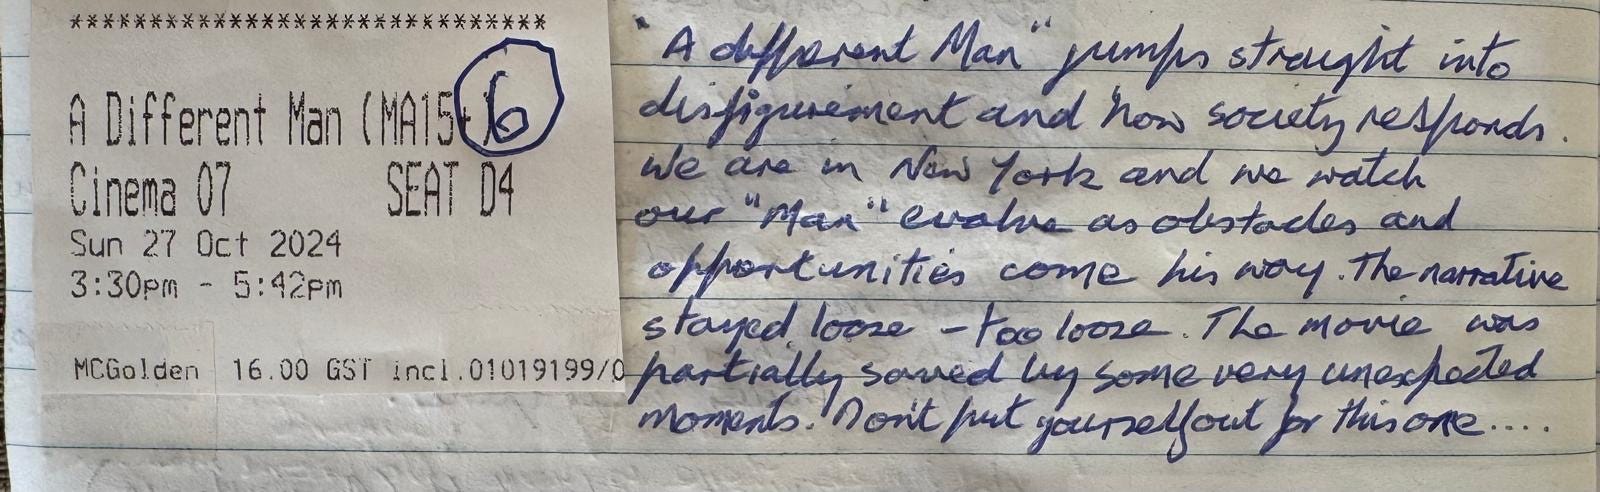 ********************************
A Different Man (MA15+)
6
Cinema 07 SEAT D4
Sun 27 Oct 2024
3:30pm - 5:42pm
MCGolden 16.00 GST incl.01019199/0
"A different Man" jumps straight into
disfigurement and how society responds.
We are in New York and we watch
our "Man" evolve as obstacles and
opportunities come his way. The narrative
stayed loose - too loose. The movie was
partially saved by some very unexpected
moments. Don't put yourself out for this one....